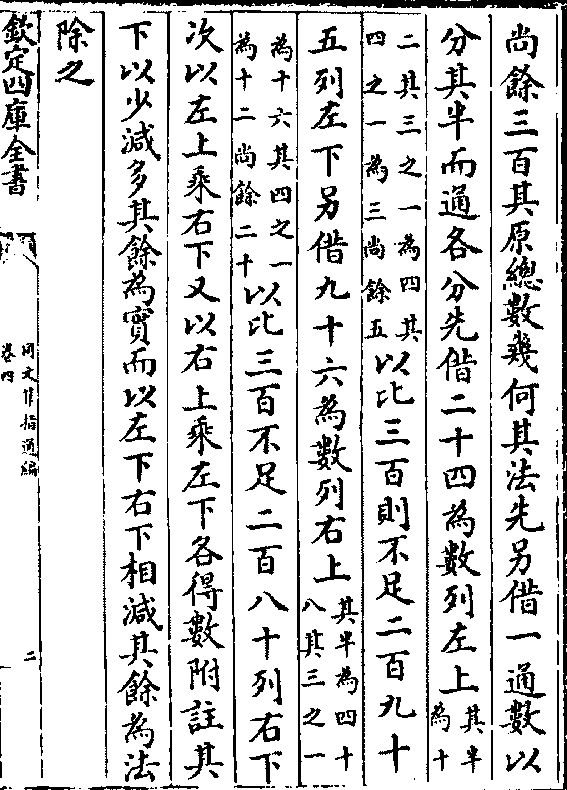 尚餘三百其原總數幾何其法先另借一通數以
分其半而通各分先借二十四為數列左上其半為十
二其三之一為四其四之一為三尚餘五以比三百則不足二百九十
五列左下另借九十六為數列右上其半為四十八其三之一
為十六其四之一為十二尚餘二十以比三百不足二百八十列右下
次以左上乘右下又以右上乘左下各得數附註其
下以少減多其餘為實而以左下右下相減其餘為法
除之
欽定四庫全書
同文算指通編
卷四
二